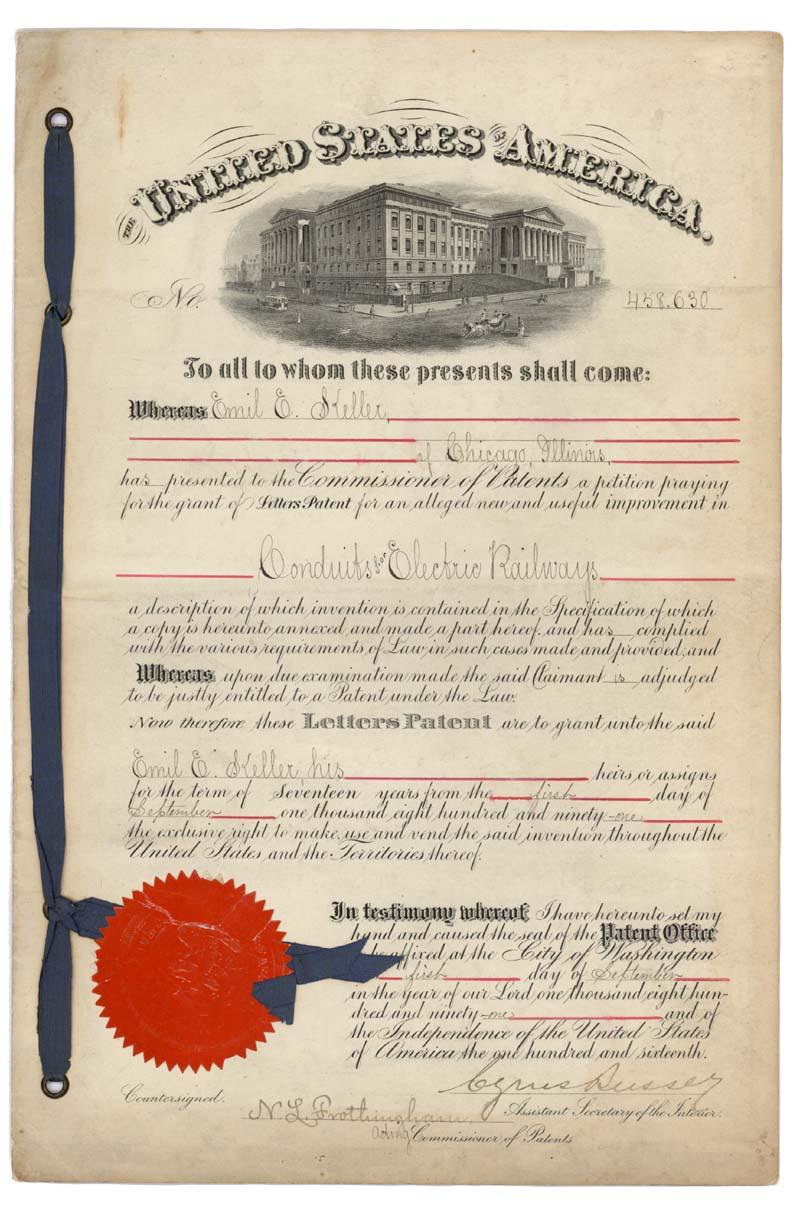 THE UNITED STATES OF AMERICA.
No. 458.630
To all to whom these presents shall come:
Whereas Emil E. Keller,
of Chicago, Illinois,
has presented to the Commissioner of Patents a petition praying
for the grant of Letters Patent for an alleged new and useful improvement in
Conduits for Electric Railways
a description of which invention is contained in the Specification of which
a copy is hereunto annexed and made a part hereof, and has complied
with the various requirements of Law in such cases made and provided, and
Whereas upon due examination made the said Claimant is adjudged
to be justly entitled to a Patent under the Law.
Now therefore these Letters Patent are to grant unto the said
Emil E. Keller, his heirs or assigns
for the term of Seventeen years from the first day of
September one thousand eight hundred and ninety-one
the exclusive right to make, use and vend the said invention throughout the
United States, and the Territories thereof.
In testimony whereof I have hereunto set my
hand and caused the seal of the Patent Office
be affixed at the City of Washington
first day of September
in the year of our Lord one thousand eight hun-
dred and ninety-one and of
the Independence of the United States
of America the one hundred and sixteenth.
Cyrus Bussey
Countersigned.
N. L. Frothingham Assistant Secretary of the Interior.
Acting Commissioner of Patents